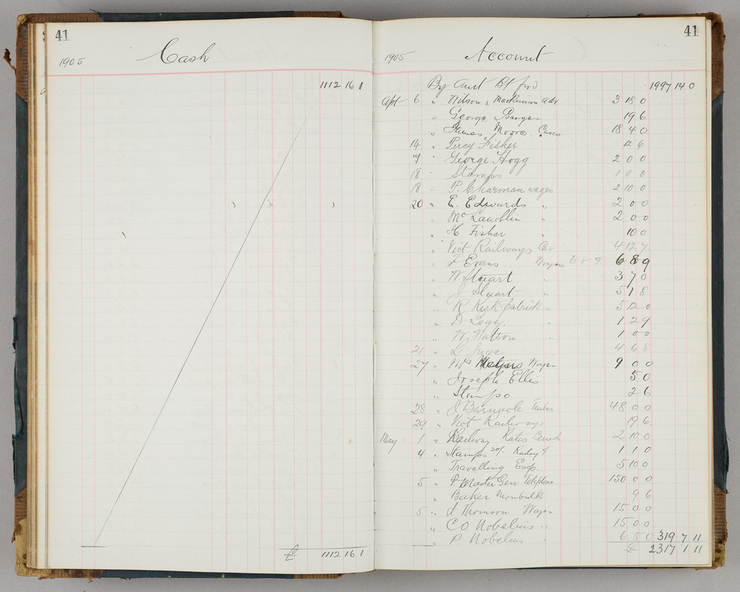 41
1905 Cash
1112 16 1
£ 1112 16 1
41
1905 Account
By Amt fwd 1997 14 0
Apl 6 " Wilson & MacKinnon adv 3 18 0
" George 19 6
" James Moore Cases 18 4 0
14 " Percy Fisher 6
" George Hogg 2 0 0
18 " Stamps 1 0 0
18 " P. Charman wages 2 10 0
20 " E. Edwards " 2 0 0
" Mc Lauchlin " 2 0 0
" H. Fisher " 10 0
" Vict Railways 4 12 7
" Evans Wages 6 8 9 6 8 9
" W Stuart " 3 7 0
" J Stuart " 5 1 8
" R. Kirkpatrick " 5 12 0
" Legg " 1 2 9
" W. Watson " 1 0 0
21 " 4 6 8
27 " Mrs Wages 9 0 0
" Joseph Ellis 5 0
" Stamps 2 6
28 " J Timber 48 0 0
29 " Vict Railways 19 6
May 1 " Railway Rates 2 10 0
4 " Stamps 20/- 1 1 0
" Travelling Exp. 5 10 0
5 " Master Gen Telephone 150 0 0
" Baker Monbulk 9 6
5 " Thomson Wages 15 0 0
" C O Nobelius " 15 0 0
" P. Nobelius " 6 5 0 319 7 11
£ 2317 1 11